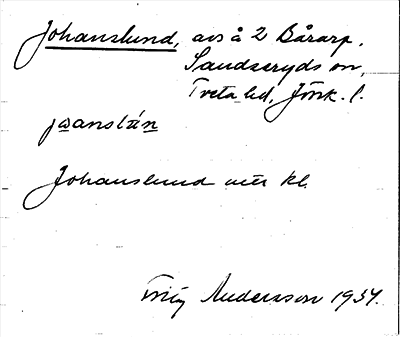 Johanslund, avs å 2 Bårarp,
Sandseryds sn,
Tveta hd, Jönk. l.
jɷanslún
Johanslund uttr kl.
Fritz Andersson 1934.